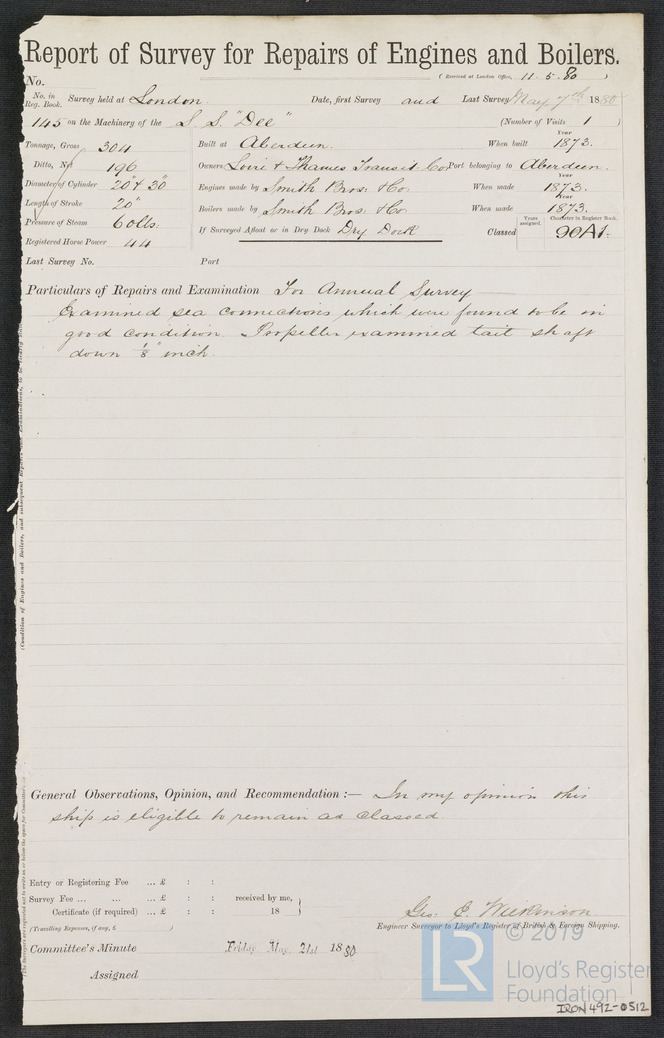 Report of Survey for Repairs of Engines and Boilers.
(Received at London Office, 11.5.80 )
No.
No. in Reg. Book. Survey held at London. Date, first Survey and Last Survey May 7th 1880
145 on the Machinery of the S. S. "Dee" (Number of Visits 1 )
Tonnage, Gross 304 Built at Aberdeen. When built Year 1873.
Ditto, Net 196 Owners Loire & Thames Transit Co. Port belonging to Aberdeen.
Diameter of Cylinder 20" & 30" Engines made by Smith Bros: & Co. When made Year 1873.
Length of Stroke 20" Boilers made by Smith Bros. & Co. When made Year 1873.
Pressure of Steam 60 lbs. If Surveyed Afloat or in Dry Dock Dry Dock Classed Years assigned. Character in Register Book. 90A1.
Registered Horse Power 44
Last Survey No. Port
Particulars of Repairs and Examination For Annual Survey
Examined sea connections which were found to be in
good condition. Propeller examined tail shaft
down 1/8" inch.
General Observations, Opinion, and Recommendation :— In my opinion this
ship is eligible to remain as classed.
Entry or Registering Fee ... £ : :
Survey Fee ... ... ... £ : : received by me,
Certificate (if required) ... £ : : 18
(Travelling Expenses, if any, £ )
Geo. E. Wilkinson
Engineer Surveyor to Lloyd's Register of British & Foreign Shipping.
Committee's Minute Friday May 21st 1880
Assigned
LR © 2019
Lloyd's Register
Foundation
IRON 492-0512